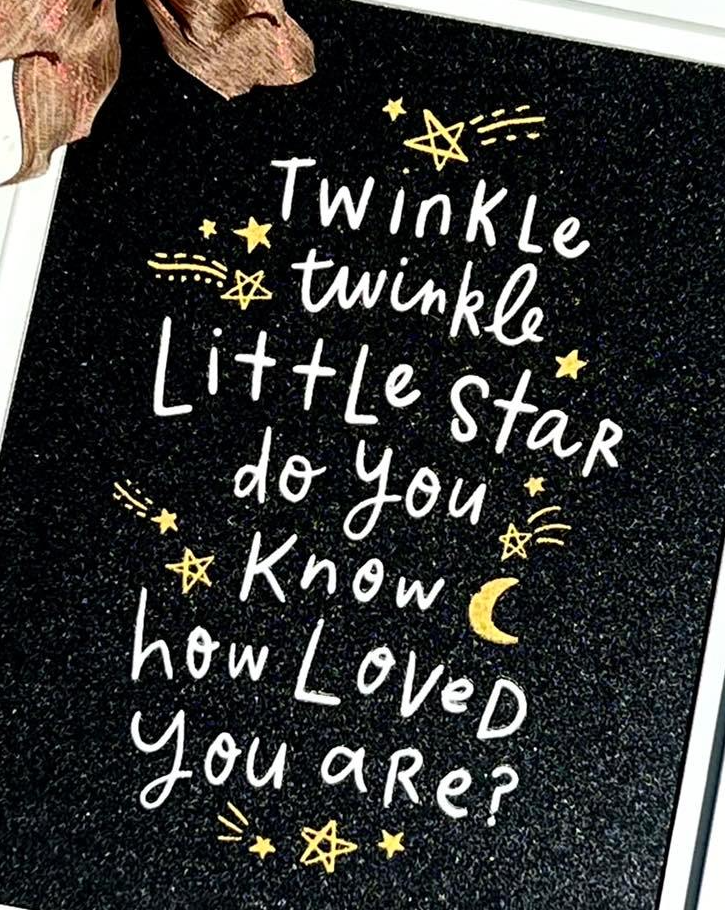 Twinkle
twinkle
Little Star
do you
Know
how Loved
you are?